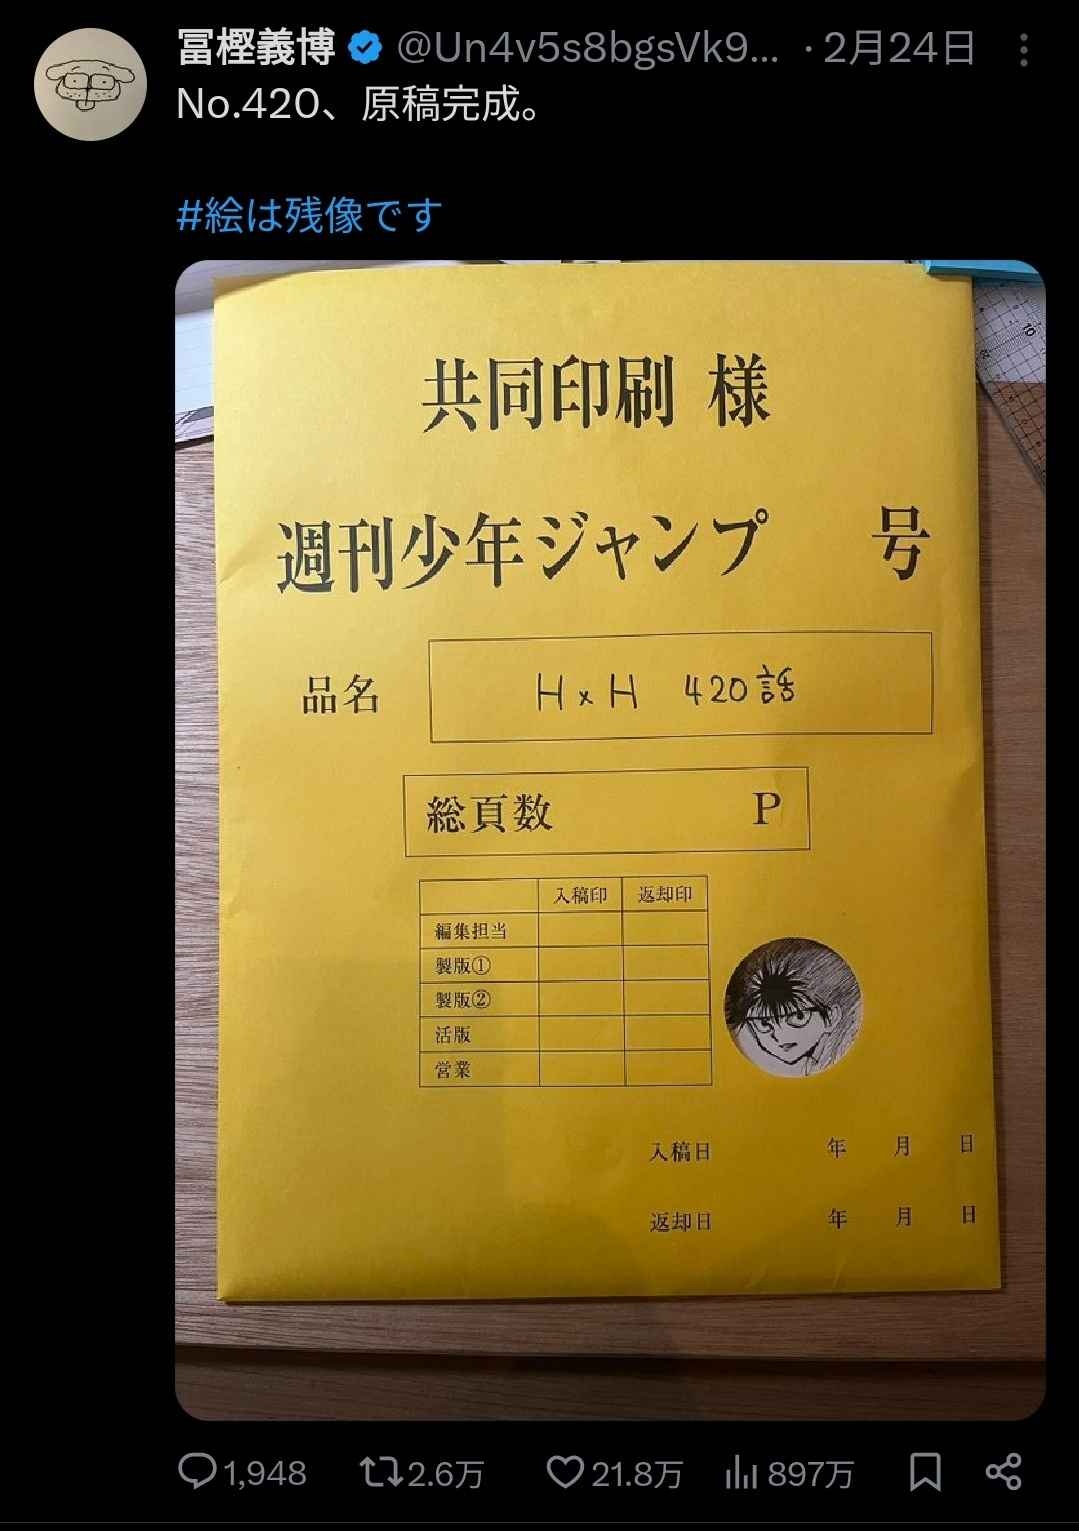 冨樫義博 @Un4v5s8bgsVk9... ・2月24日
No.420、原稿完成。
#絵は残像です
共同印刷 様
週刊少年ジャンプ 号
品名 H×H 420話
総頁数 P
入稿印 返却印
編集担当
製版①
製版②
活版
営業
入稿日 年 月 日
返却日 年 月 日
1,948 2.6万 21.8万 897万